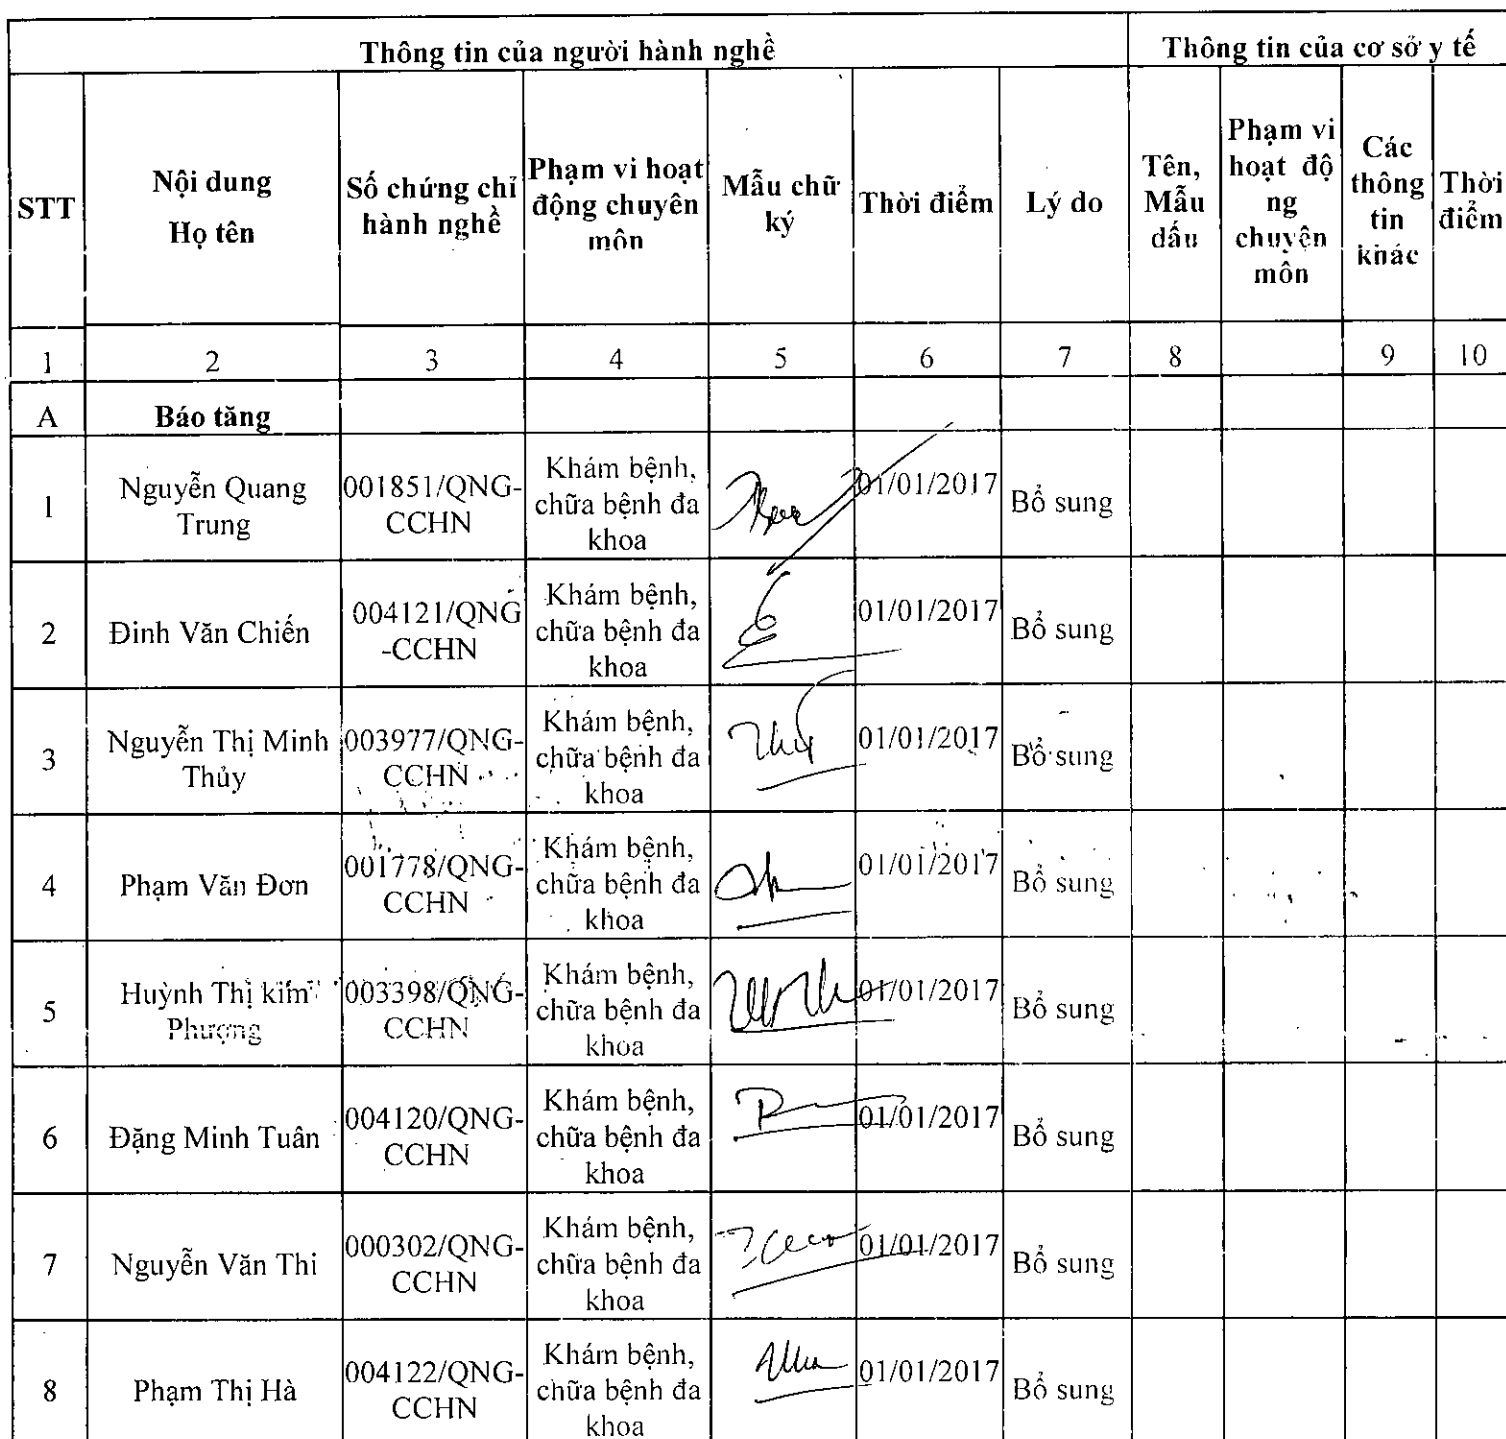 Thông tin của người hành nghề
Thông tin của cơ sở y tế
STT
Nội dung
Họ tên
Số chứng chỉ
hành nghề
Phạm vi hoạt
động chuyên
môn
Mẫu chữ
ký
Thời điểm
Lý do
Tên,
Mẫu
dấu
Phạm vi
hoạt độ
ng
chuyên
môn
Các
thông
tin
khác
Thời
điểm
1 2 3 4 5 6 7 8 9 10
A Báo tăng
1
Nguyễn Quang
Trung
001851/QNG-
CCHN
Khám bệnh,
chữa bệnh đa
khoa
01/01/2017
Bổ sung
2
Đinh Văn Chiến
004121/QNG
-CCHN
Khám bệnh,
chữa bệnh đa
khoa
01/01/2017
Bổ sung
3
Nguyễn Thị Minh
Thủy
003977/QNG-
CCHN
Khám bệnh,
chữa bệnh đa
khoa
01/01/2017
Bổ sung
4
Phạm Văn Đơn
001778/QNG-
CCHN
Khám bệnh,
chữa bệnh đa
khoa
01/01/2017
Bổ sung
5
Huỳnh Thị kim
Phượng
003398/QNG-
CCHN
Khám bệnh,
chữa bệnh đa
khoa
01/01/2017
Bổ sung
6
Đặng Minh Tuân
004120/QNG-
CCHN
Khám bệnh,
chữa bệnh đa
khoa
01/01/2017
Bổ sung
7
Nguyễn Văn Thi
000302/QNG-
CCHN
Khám bệnh,
chữa bệnh đa
khoa
01/01/2017
Bổ sung
8
Phạm Thị Hà
004122/QNG-
CCHN
Khám bệnh,
chữa bệnh đa
khoa
01/01/2017
Bổ sung